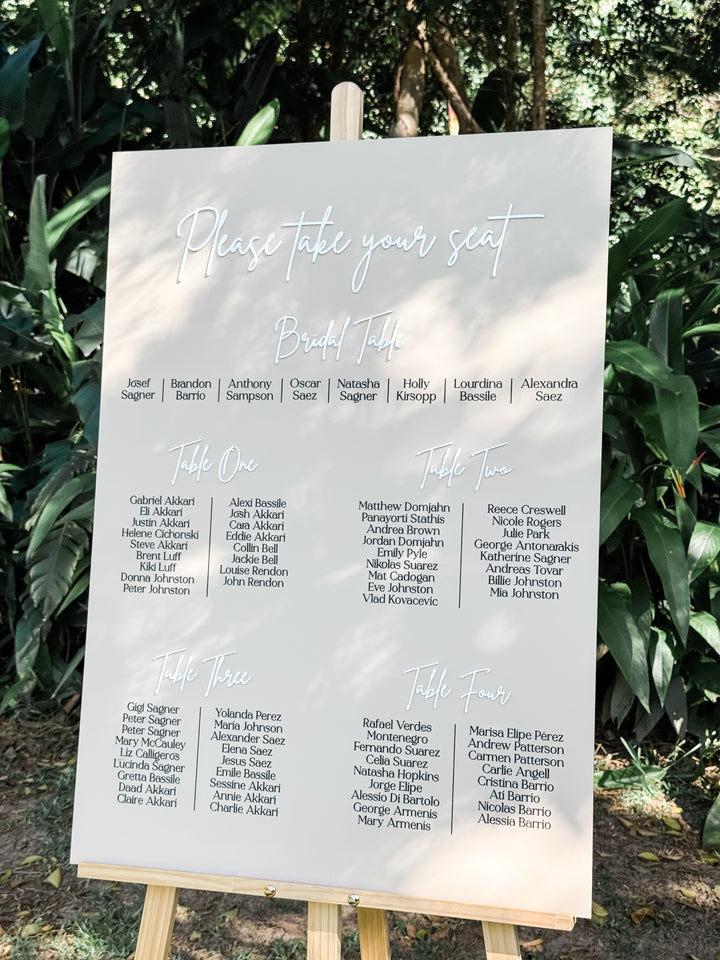 Please take your seat
Bridal Table
Josef Sagner | Brandon Barrio | Anthony Sampson | Oscar Saez | Natasha Sagner | Holly Kirsopp | Lourdina Bassile | Alexandra Saez
Table One
Gabriel Akkari
Eli Akkari
Justin Akkari
Helene Cichonski
Steve Akkari
Brent Luff
Kiki Luff
Donna Johnston
Peter Johnston
Alexi Bassile
Josh Akkari
Cara Akkari
Eddie Akkari
Collin Bell
Jackie Bell
Louise Rendon
John Rendon
Table Two
Matthew Domjahn
Panayorti Stathis
Andrea Brown
Jordan Domjahn
Emily Pyle
Nikolas Suarez
Mat Cadogan
Eve Johnston
Vlad Kovacevic
Reece Creswell
Nicole Rogers
Julie Park
George Antonarakis
Katherine Sagner
Andreas Tovar
Billie Johnston
Mia Johnston
Table Three
Gigi Sagner
Peter Sagner
Peter Sagner
Mary McCauley
Liz Calligeros
Lucinda Sagner
Gretta Bassile
Daad Akkari
Claire Akkari
Yolanda Perez
Maria Johnson
Alexander Saez
Elena Saez
Jesus Saez
Emile Bassile
Sessine Akkari
Annie Akkari
Charlie Akkari
Table Four
Rafael Verdes
Montenegro
Fernando Suarez
Celia Suarez
Natasha Hopkins
Jorge Elipe
Alessio Di Bartolo
George Armenis
Mary Armenis
Marisa Elipe Pérez
Andrew Patterson
Carmen Patterson
Carlie Angell
Cristina Barrio
Ati Barrio
Nicolas Barrio
Alessia Barrio